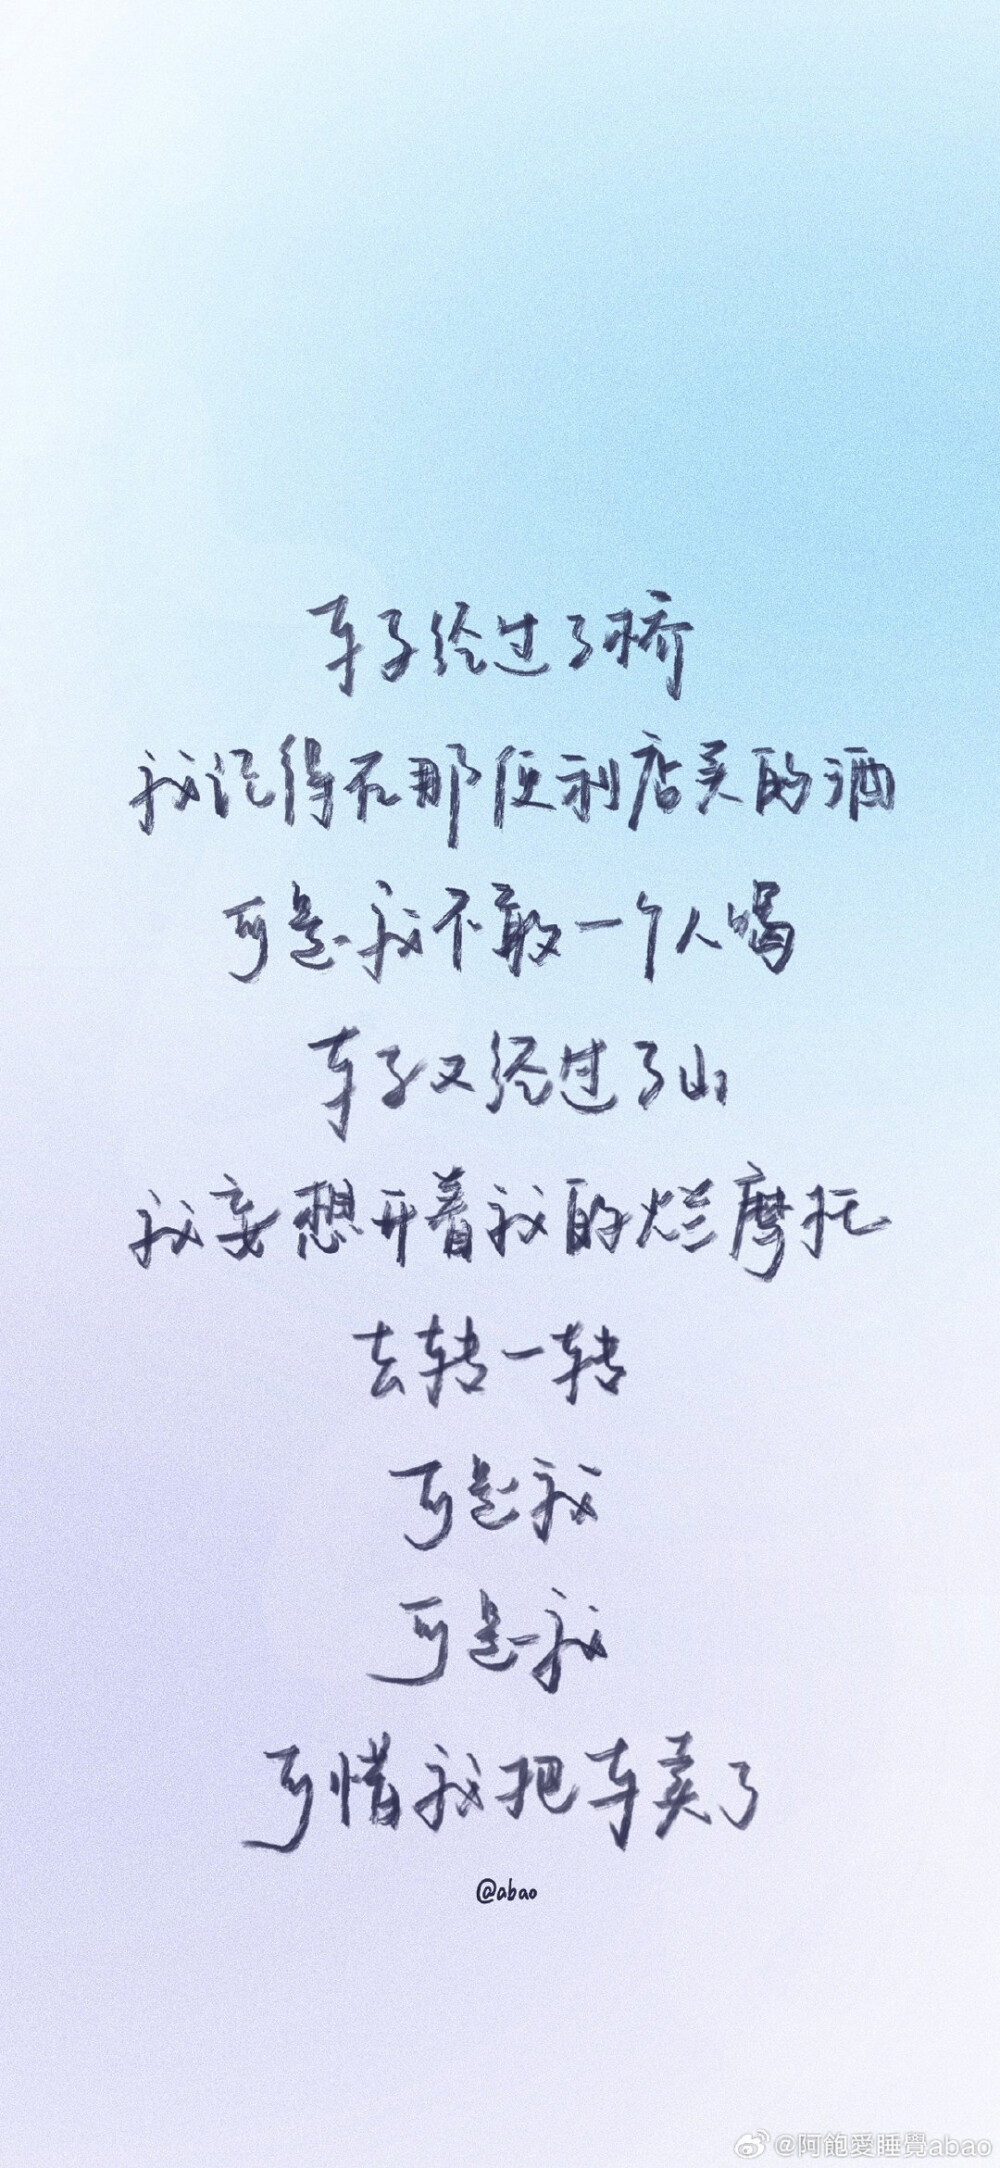 车子经过了桥
我记得在那便利店买的酒
可是我不敢一个人喝
车子又经过了山
我妄想开着我的烂摩托
去转一转
可是我
可是我
可惜我把车卖了
@abao
@阿飽愛睡覺abao